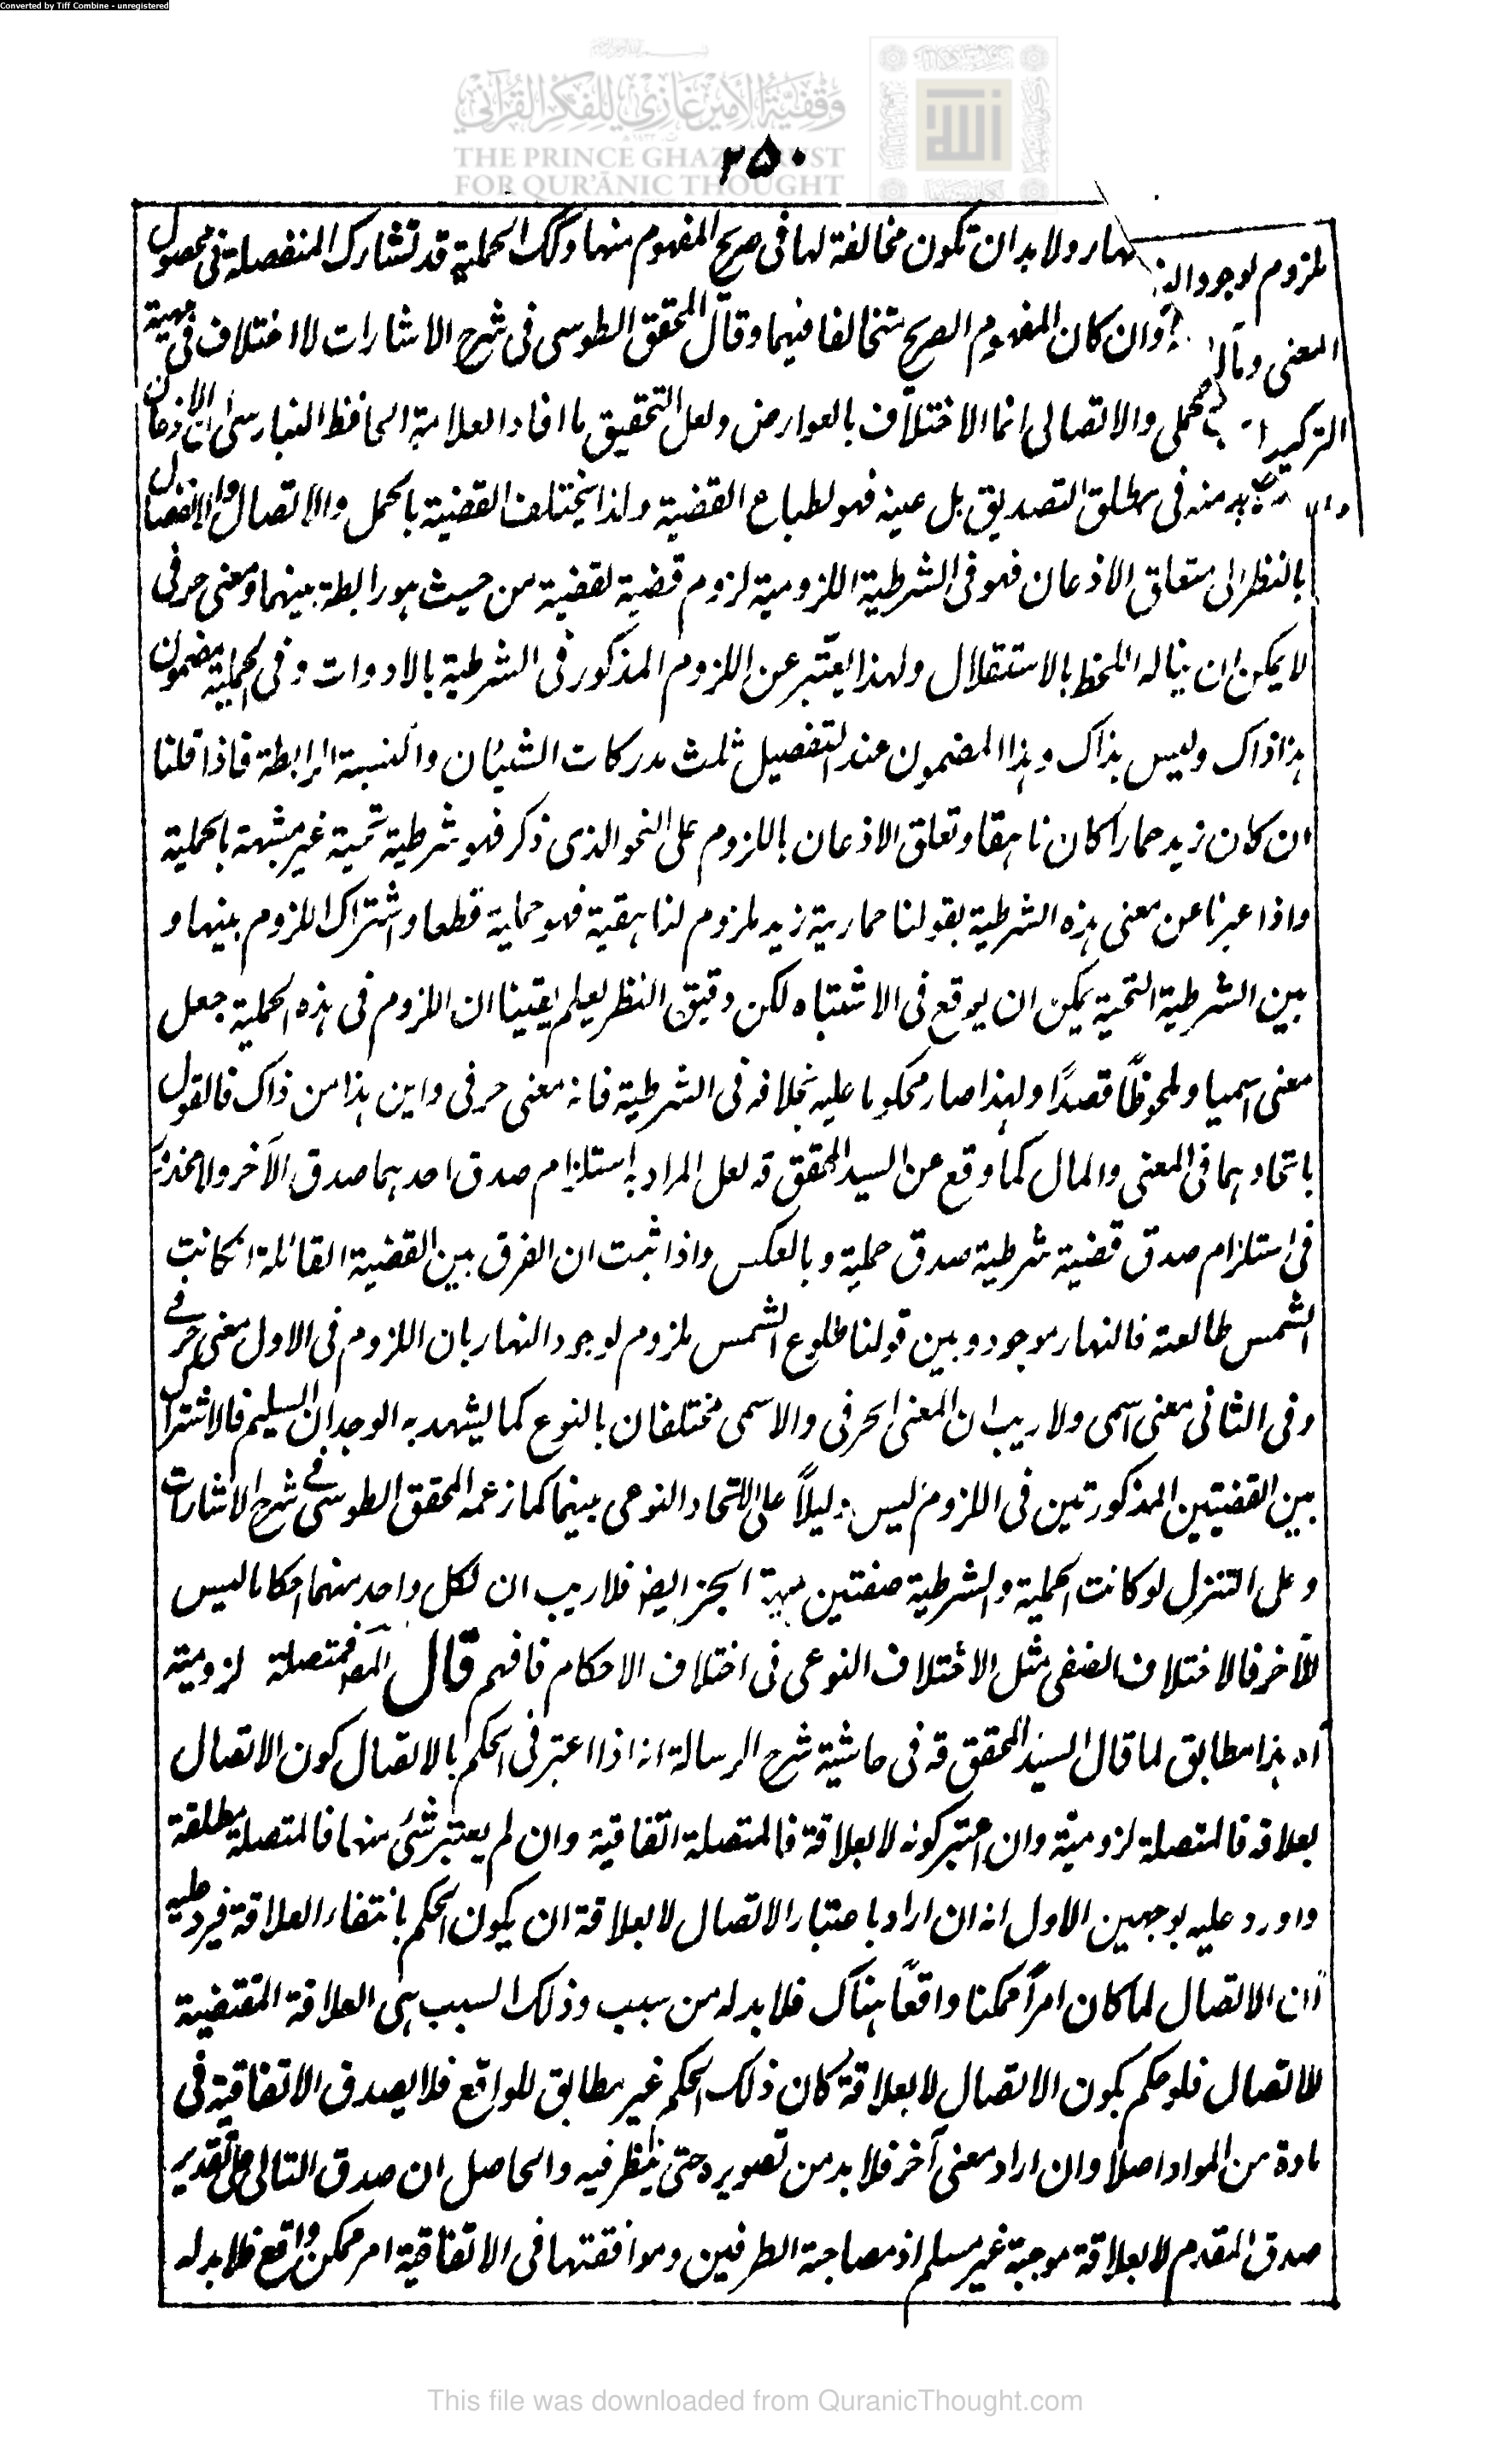 Converted by Tiff Combine - unregistered
وقفية الأمير غازي للفكر القرآني
THE PRINCE GHAZI TRUST
FOR QUR'ĀNIC THOUGHT
۲۵۰
ملزوم لوجود النهار ولا بد ان تكون مخالفة لها فى صريح المفهوم منها وكك الحملية قد تشارك المنفصلة فى محصول
المعنى و وان كان المفهوم الصريح متخالفا فيهما وقال المحقق الطوسى فى شرح الاشارات لا اختلاف فى مهية
التركيب الحملى والاتصالى انما الاختلاف بالعوارض ولعل التحقيق ما افاد العلامة الحافظ البنارسى ان الاذعان
لا بد منه فى مطلق التصديق بل عينه فهو لطباع القضية ولذا يختلف القضية بالحمل والاتصال والانفصال
بالنظر الى متعلق الاذعان فهو فى الشرطية اللزومية لزوم قضية لقضية من حيث هو رابطة بينهما ومعنى حرفى
لا يمكن ان يناله اللحظ بالاستقلال ولهذا يعبر عن اللزوم المذكور فى الشرطية بالادوات وفى الحملية مضمون
هذا ذاك وليس بذاك وهذا المضمون عند التفصيل ثلث مدركات الشيئان والنسبة الرابطة فاذا قلنا
ان كان زيد حمارا كان ناهقا وتعلق الاذعان باللزوم على النحو الذى ذكر فهو شرطية تحية غير مشبهة بالحملية
واذا عبرنا عن معنى هذه الشرطية بقولنا حمارية زيد ملزوم لناهقية فهو حملية قطعا واشتراك اللزوم بينها و
بين الشرطية التحية يمكن ان يوقع فى الاشتباه لكن دقيق النظر يعلم يقينا ان اللزوم فى هذه الحملية جعل
معنى اسميا وملحوظًا قصدًا ولهذا صار محكوما عليه بخلافه فى الشرطية فانه معنى حرفى واين هذا من ذاك فالقول
باتحادهما فى المعنى والمال كما وقع عن السيد المحقق قه لعل المراد به استلزام صدق احدهما صدق الآخر ولا محذور
فى استلزام صدق قضية شرطية صدق حملية وبالعكس واذا ثبت ان الفرق بين القضية القائلة انكانت
الشمس طالعة فالنهار موجود وبين قولنا طلوع الشمس ملزوم لوجود النهار بان اللزوم فى الاول معنى حرفى
وفى الثانى معنى اسمى ولا ريب ان المعنى الحرفى والاسمى مختلفان بالنوع كما يشهد به الوجدان السليم فالاشتراك
بين القضيتين المذكورتين فى اللزوم ليس دليلًا على الاتحاد النوعى بينهما كما زعمه المحقق الطوسى فى شرح الاشارات
وعلى التنزل لو كانت الحملية والشرطية صنفتين ايضا فلا ريب ان لكل واحد منهما احكاما ليس
للآخر فالاختلاف الصنفى مثل الاختلاف النوعى فى اختلاف الاحكام فافهم قال المصـ فمتصلة لزومية
آه هذا مطابق لما قال السيد المحقق قه فى حاشية شرح الرسالة انه اذا اعتبر فى الحكم بالاتصال كون الاتصال
بعلاقة فالمتصلة لزومية وان اعتبر كونه لا بعلاقة فالمتصلة اتفاقية وان لم يعتبر شئ منهما فالمتصلة مطلقة
واورد عليه بوجهين الاول انه ان اراد باعتبار الاتصال لا بعلاقة ان يكون الحكم بانتفاء العلاقة فيرد عليه
ان الاتصال لما كان امرًا ممكنا واقعًا هناك فلا بد له من سبب وذلك السبب هى العلاقة المقتضية
للاتصال فلو حكم بكون الاتصال لا بعلاقة كان ذلك الحكم غير مطابق للواقع فلا يصدق الاتفاقية فى
مادة من المواد اصلا وان اراد معنى آخر فلا بد من تصويره حتى ينظر فيه والحاصل ان صدق التالى على تقدير
صدق المقدم لا بعلاقة موجبة غير مسلم اذ مصاحبة الطرفين وموافقتها فى الاتفاقية امر ممكن واقع فلا بد له
This file was downloaded from QuranicThought.com